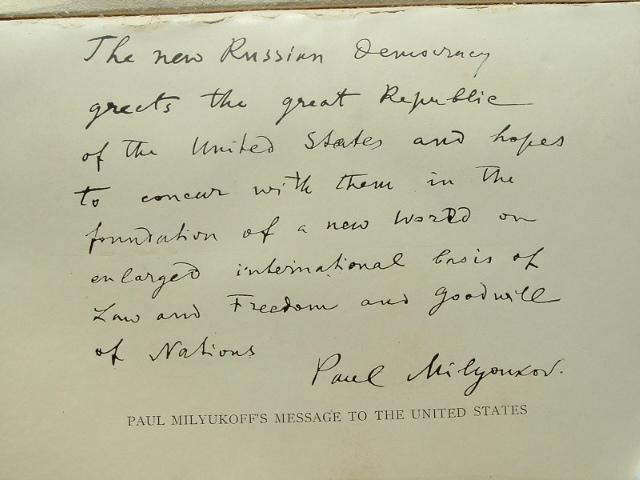 The new Russian Democracy
greets the great Republic
of the United States and hopes
to concur with them in the
foundation of a new World on
enlarged international basis of
Law and Freedom and goodwill
of Nations
Paul Milyoukov.
PAUL MILYUKOFF'S MESSAGE TO THE UNITED STATES